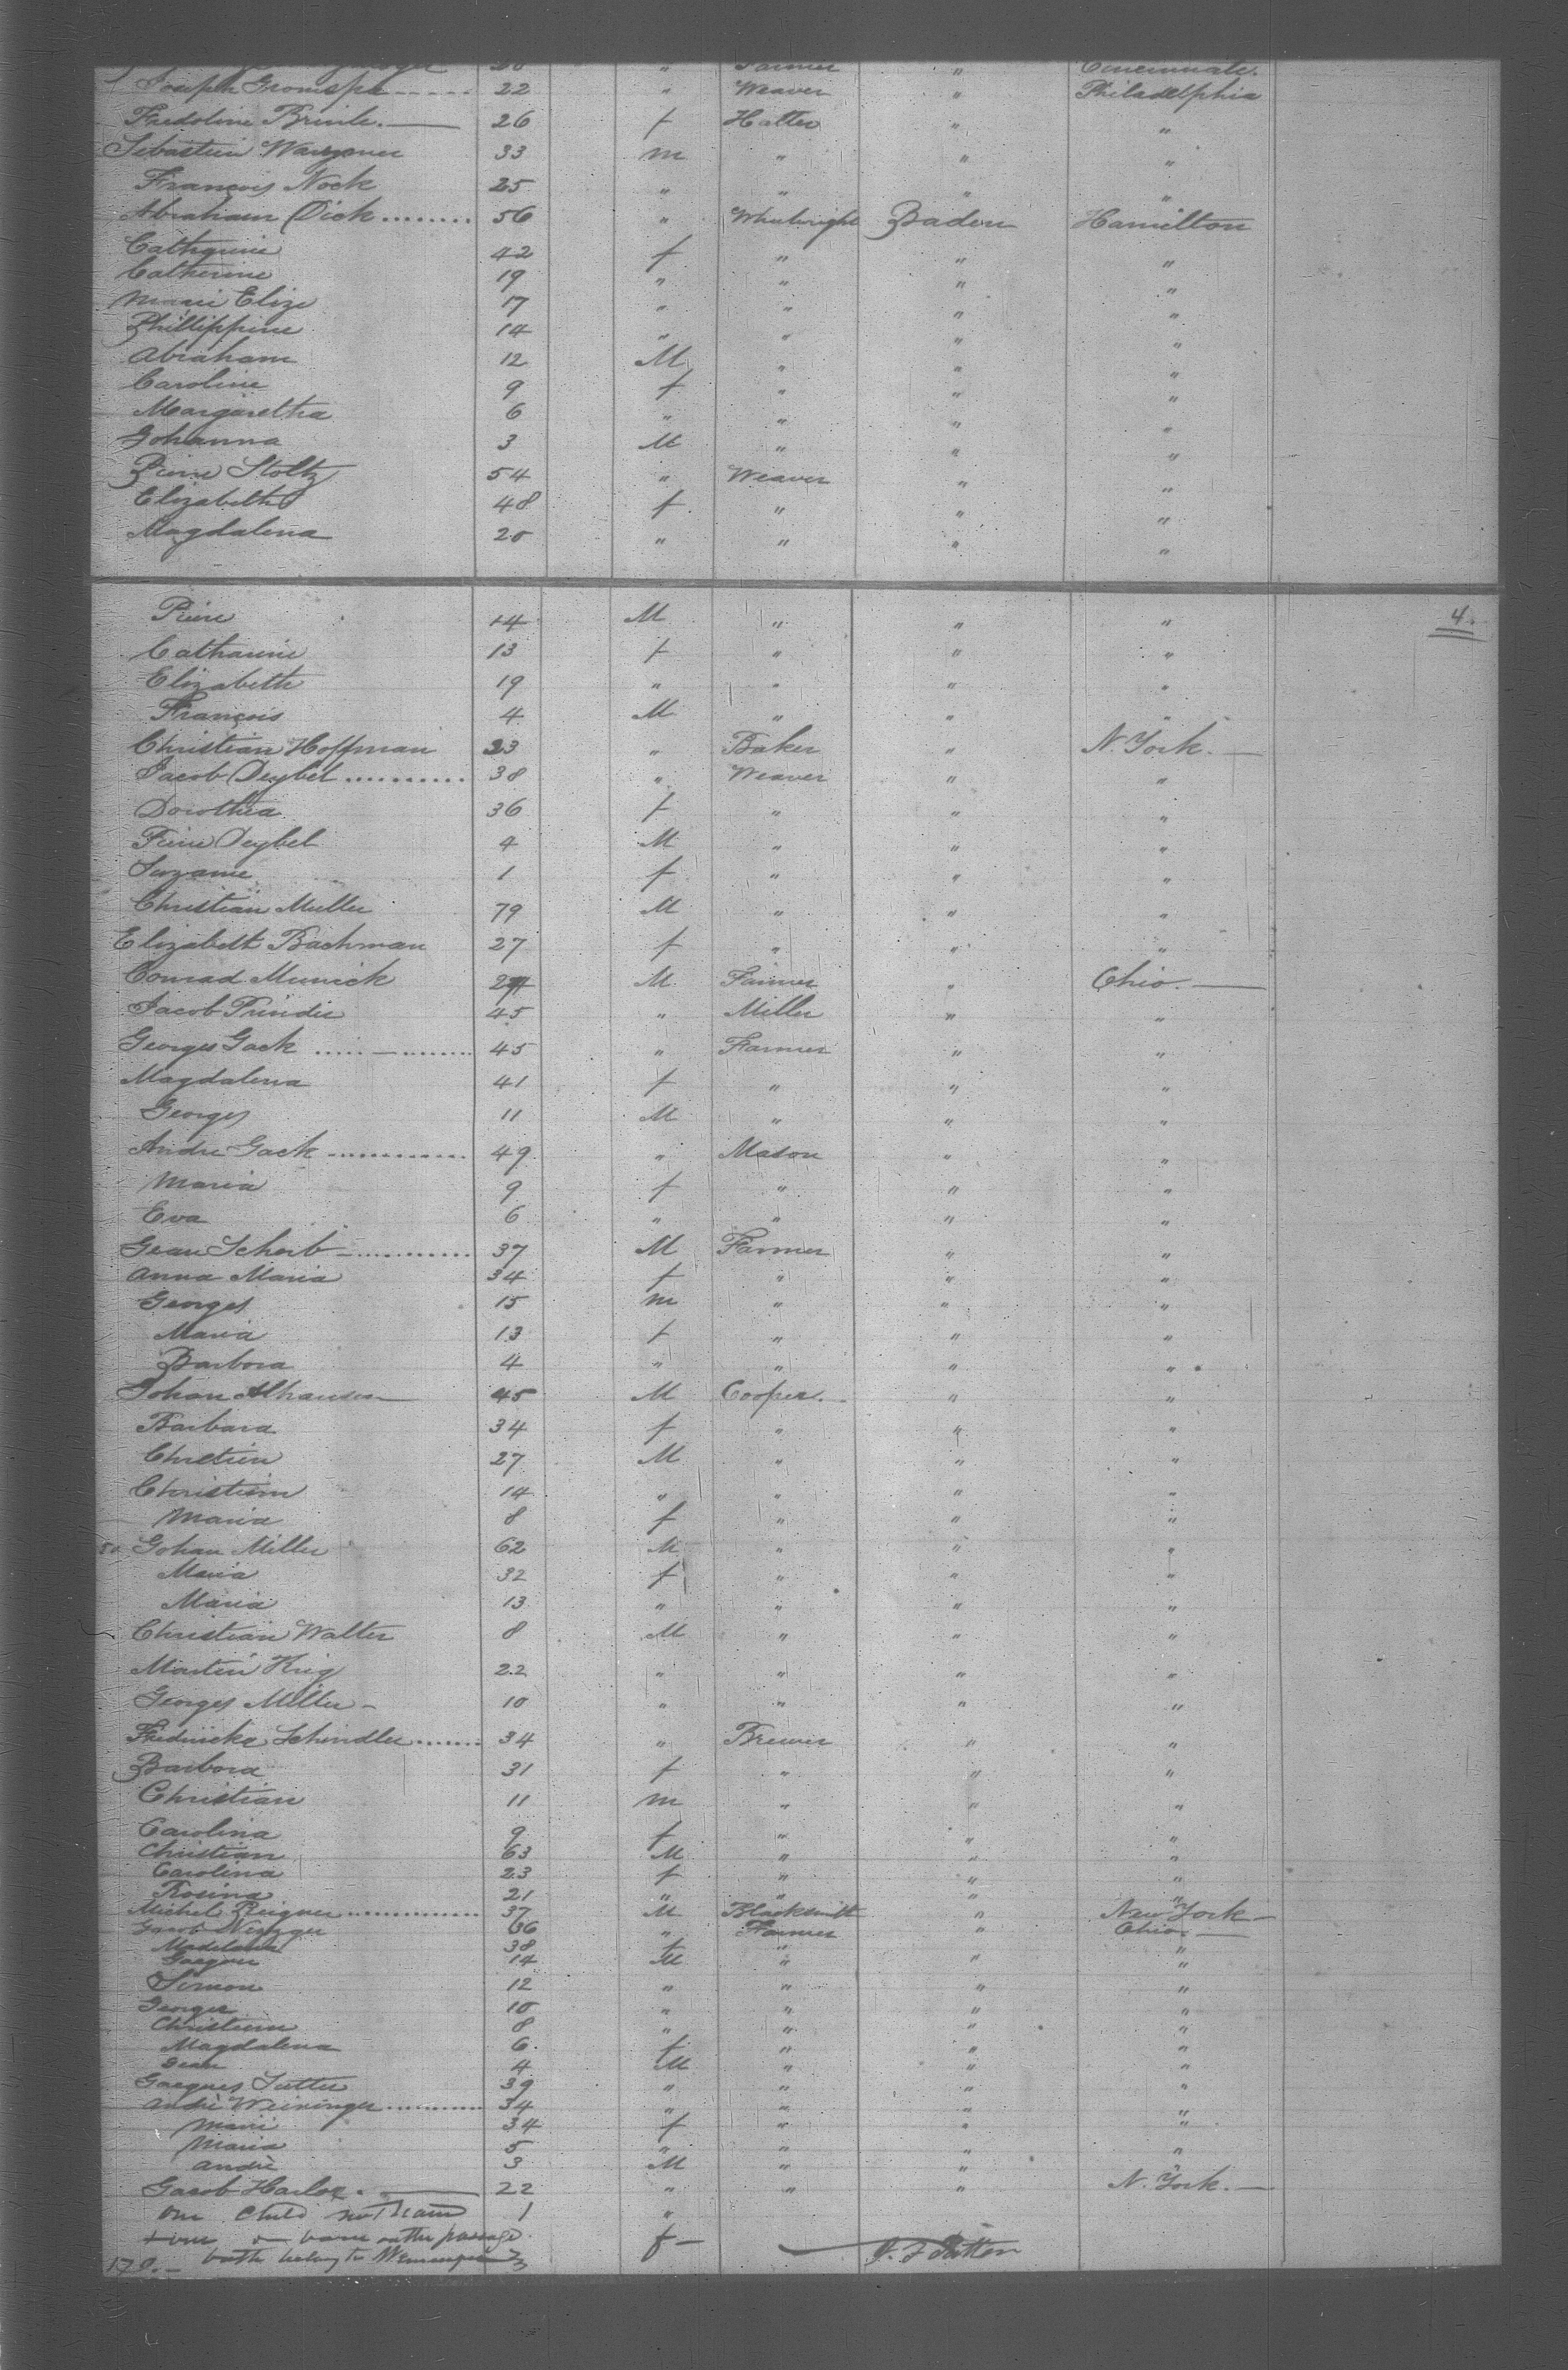 20 " Farmer " Cincinnati.
Joseph 22 " Weaver " Philadelphia
Fredoline Brinle. 26 f Hatter " "
Sebastien Wagoner 33 m " " "
François Nock 25 " " " "
Abraham Dick ........ 56 " Wheelwright Baden Hamilton
Cathquine 42 f " " "
Catherine 19 " " " "
Marie Elize 17 " " " "
Phillippine 14 " " " "
Abraham 12 M " " "
Caroline 9 f " " "
Margaretha 6 " " " "
Johanna 3 M " " "
Pierre Stoltz 54 " Weaver " "
Elizabeth 48 f " " "
Magdalena 20 " " " "
Pierre 14 M " " " 4.
Catharine 13 f " " "
Elizabeth 19 " " " "
François 4 M " " "
Christian Hoffman 23 " Baker " N. York.
Jacob Deybel .......... 38 " Weaver " "
Dorothea 36 f " " "
Pierre Deybel 4 M " " "
Suzanne 1 f " " "
Christian Muller 79 M " " "
Elizabeth Bachman 27 f " " "
Conrad Munick M Farmer " Ohio.
Jacob 45 " Miller " "
Georges Gack ..... — ........ 45 " Farmer " "
Magdalena 41 f " " "
Georges 11 M " " "
Andre Gack ............ 49 " Mason " "
Maria 9 f " " "
Eva 6 " " " "
Gean Scherb ............ 37 M Farmer " "
Anna Maria 34 f " " "
Georges 15 m " " "
Maria 13 f " " "
Barbora 4 " " " "
Johan Alhausen 45 M Cooper. " "
Barbara 34 f " " "
Chretien 27 M " " "
Christian 14 " " " "
Maria 8 f " " "
Gohan Miller 62 M " " "
Maria 32 f " " "
Maria 13 " " " "
Christian Walter 8 M " " "
Martin Krig 22 " " " "
Georges Miller 10 " " " "
Fredericke Schindler ....... 34 " Brewer " "
Barbora 31 f " " "
Christian 11 m " " "
Carolina 9 f " " "
Christian 63 M " " "
Carolina 23 f " " "
Rosina 21 " " " "
Michel ............. 37 M Blacksmith " New York
Jacob 36 " Farmer " Ohio.
38 f " " "
14 M " " "
Simon 12 " " " "
Georges 10 " " " "
Christian 8 " " " "
Magdalena 6. f " " "
Jean 4 M " " "
Gacques Sutter 39 " " " "
André Weininger ........... 34 " " " "
Marie 34 f " " "
Maria 5 " " " "
André 3 M " " "
Gacob 22 " " " N. York.
One child 1 "
born on the passage f
170. both belong to